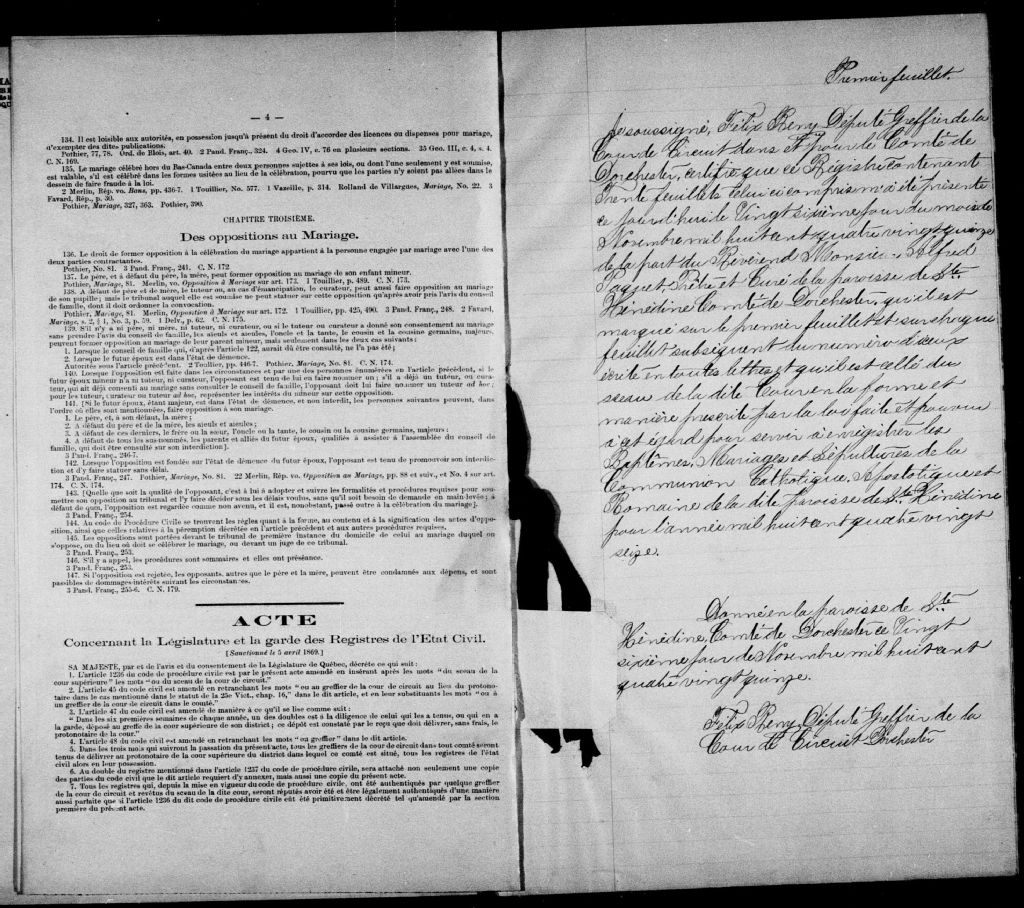 — 4 —
134. Il est loisible aux autorités, en possession jusqu'à présent du droit d'accorder des licences ou dispenses pour mariage,
d'exempter des dites publications.
Pothier, 77, 78. Ord. de Blois, art. 40. 2 Pand. Franç., 324. 4 Geo. IV, c. 76 en plusieurs sections. 35 Geo. III, c. 4, s. 4.
C. N. 169.
135. Le mariage célébré hors du Bas-Canada entre deux personnes sujettes à ses lois, ou dont l'une seulement y est soumise,
est valable, s'il est célébré dans les formes usitées au lieu de la célébration, pourvu que les parties n'y soient pas allées dans le
dessein de faire fraude à la loi.
2 Merlin, Rép. vo. Bans, pp. 436-7. 1 Touillier, No. 577. 1 Vazeille, p. 314. Rolland de Villargues, Mariage, No. 22. 3
Favard, Rép., p. 30.
Pothier, Mariage, 327, 363. Pothier, 390.
CHAPITRE TROISIÈME.
Des oppositions au Mariage.
136. Le droit de former opposition à la célébration du mariage appartient à la personne engagée par mariage avec l'une des
deux parties contractantes.
Pothier, No. 81. 3 Pand. Franç., 241. C. N. 172
137. Le père, et à défaut du père, la mère, peut former opposition au mariage de son enfant mineur.
Pothier, Mariage, 81. Merlin, vo. Opposition à Mariage sur art. 173. 1 Touillier, p. 489. C. N. 173.
138. A défaut de père et de mère, le tuteur ou, au cas d'émancipation, le curateur, peut aussi faire opposition au mariage
de son pupille; mais le tribunal auquel elle est soumise ne peut statuer sur cette opposition qu'après avoir pris l'avis du conseil
de famille, dont il doit ordonner la convocation.
Pothier, Mariage, 81. Merlin, Opposition à Mariage sur art. 172. 1 Touillier, pp. 425, 490. 3 Pand. Franç., 248. 2 Favard,
Mariage, s. 2, § 1, No. 3, p. 59. 1 Delv., p. 62. C. N. 175.
139. S'il n'y a ni père, ni mère, ni tuteur, ni curateur, ou si le tuteur ou curateur a donné son consentement au mariage
sans prendre l'avis du conseil de famille, les aïeuls et aïeules, l'oncle et la tante, le cousin et la cousine germains, majeurs,
peuvent former opposition au mariage de leur parent mineur, mais seulement dans les deux cas suivants:
1. Lorsque le conseil de famille qui, d'après l'article 122, aurait dû être consulté, ne l'a pas été;
2. Lorsque le futur époux est dans l'état de démence.
Autorités sous l'article précédent. 2 Touillier, pp. 446-7. Pothier, Mariage, No. 81. C. N. 174.
140. Lorsque l'opposition est faite dans les circonstances et par une des personnes énumérées en l'article précédent, si le
futur époux mineur n'a ni tuteur, ni curateur, l'opposant est tenu de lui en faire nommer un; s'il a déjà un tuteur, ou curateur,
qui ait déjà consenti au mariage sans consulter le conseil de famille, l'opposant doit lui faire nommer un tuteur ad hoc;
pour les tuteur, curateur ou tuteur ad hoc, représenter les intérêts du mineur sur cette opposition.
141. (Si le futur époux, étant majeur, est dans l'état de démence, et non interdit, les personnes suivantes peuvent, dans
l'ordre où elles sont mentionnées, faire opposition à son mariage.
1. Le père, et, à son défaut, la mère;
2. A défaut du père et de la mère, les aïeuls et aïeules;
3. A défaut de ces derniers, le frère ou la sœur, l'oncle ou la tante, le cousin ou la cousine germains, majeurs:
4. A défaut de tous les sus-nommés, les parents et alliés du futur époux, qualifiés à assister à l'assemblée du conseil de
famille, qui doit être consulté sur son interdiction]
3 Pand. Franç., 246-7.
142. Lorsque l'opposition est fondée sur l'état de démence du futur époux, l'opposant est tenu de promouvoir son interdiction
et d'y faire statuer sans délai.
3 Pand. Franç., 247. Pothier, Mariage, No. 81. 22 Merlin, Rép. vo. Opposition au Mariage, pp. 88 et suiv., et No. 4 sur art.
174. C. N. 174.
143. [Quelle que soit la qualité de l'opposant, c'est à lui à adopter et suivre les formalités et procédures requises pour soumettre
son opposition au tribunal et l'y faire décider sans les délais voulus, sans qu'il soit besoin de demande en main-levée; à
défaut de quoi, l'opposition est regardée comme non avenu, et il est, nonobstant, passé outre à la célébration du mariage].
3 Pand. Franç., 254.
144. Au code de Procédure Civile se trouvent les règles quant à la forme, au contenu et à la signification des actes d'opposition,
ainsi que celles relatives à la péremption décrétée en l'article précédent et aux autres procédures requises.
145. Les oppositions sont portées devant le tribunal de première instance du domicile de celui au mariage duquel on
s'oppose, ou du lieu où doit se célébrer le mariage, ou devant un juge de ce tribunal.
3 Pand. Franç., 253.
146. S'il y a appel, les procédures sont sommaires et elles ont préséance.
3 Pand. Franç., 253.
147. Si l'opposition est rejetée, les opposants, autres que le père et la mère, peuvent être condamnés aux dépens, et sont
passibles de dommages-intérêts suivant les circonstances.
3 Pand. Franç., 255-6. C. N. 179.
ACTE
Concernant la Législature et la garde des Registres de l'Etat Civil.
[Sanctionné le 5 avril 1869.]
SA MAJESTE, par et de l'avis et du consentement de la Législature de Québec, décrète ce qui suit:
1. L'article 1236 du code de procédure civile est par le présent acte amendé en insérant après les mots "du sceau de la
cour supérieure" les mots "ou du sceau de la cour de circuit."
2. L'article 45 du code civil est amendé en retranchant les mots "ou au greffier de la cour de circuit au lieu du protonotaire
dans le cas mentionné dans le statut de la 25e Vict., chap. 16," dans le dit article, et en leur substituants les mots "ou à
un greffier de la cour de circuit dans le comté."
3. L'article 47 du code civil est amendé de manière à ce qu'il se lise comme suit:
"Dans les six premières semaines de chaque année, un des doubles est à la diligence de celui qui les a tenus, ou qui en a
la garde, déposé au greffe de la cour supérieure de son district; ce dépôt est constaté par le reçu que doit délivrer, sans frais, le
protonotaire de la cour."
4. L'article 48 du code civil est amendé en retranchant les mots "ou greffier" dans le dit article.
5. Dans les trois mois qui suivront la passation du présent acte, tous les greffiers de la cour de circuit dans tout comté seront
tenus de délivrer au protonotaire de la cour supérieure du district dans lequel ce comté est situé, tous les registres de l'état
civil alors en leur possession.
6. Au double du registre mentionné dans l'article 1237 du code de procédure civile, sera attaché non seulement une copie
des parties du code civil que le dit article requiert d'y annexer, mais aussi une copie du présent acte.
7. Tous les registres qui, depuis la mise en vigueur du code de procédure civile, ont été authentiqués par quelque greffier
de la cour de circuit et revêtus du sceau de la dite cour, seront réputés avoir été et être légalement authentiqués d'une manière
aussi parfaite que si l'article 1236 du dit code de procédure civile eût été primitivement décrété tel qu'amendé par la section
première du présent acte.
Premier feuillet.
Je soussigné, Félix Remy Député Greffier de la
Cour de Circuit dans et pour le Comté de
Dorchester, certifie que ce Régistre contenant
Trente feuillets celui ci compris m'a été présenté
ce jourd'hui le Vingt sixième jour du mois de
Novembre mil huit cent quatre vingt quinze
de la part du Révérend Monsieur Alfred
Paquet Prêtre et Curé de la paroisse de Ste
Hénédine Comté de Dorchester, qu'il est
marqué sur le premier feuillet et sur chaque
feuillet subséquent du numéro d'iceux
écrit en toutes lettres et qu'il est scellé du
sceau de la dite Cour en la forme et
manière prescrite par la loi faite et pourvue
à cet égard pour servir à enregistrer les
Baptêmes, Mariages et Sépultures de la
Communion Catholique, Apostolique et
Romaine de la dite paroisse de Ste Hénédine
pour l'année mil huit cent quatre vingt
seize.
Donné en la paroisse de Ste
Hénédine, Comté de Dorchester ce Vingt
sixième jour de Novembre mil huit cent
quatre vingt quinze.
Félix Remy Député Greffier de la
Cour de Circuit Dorchester